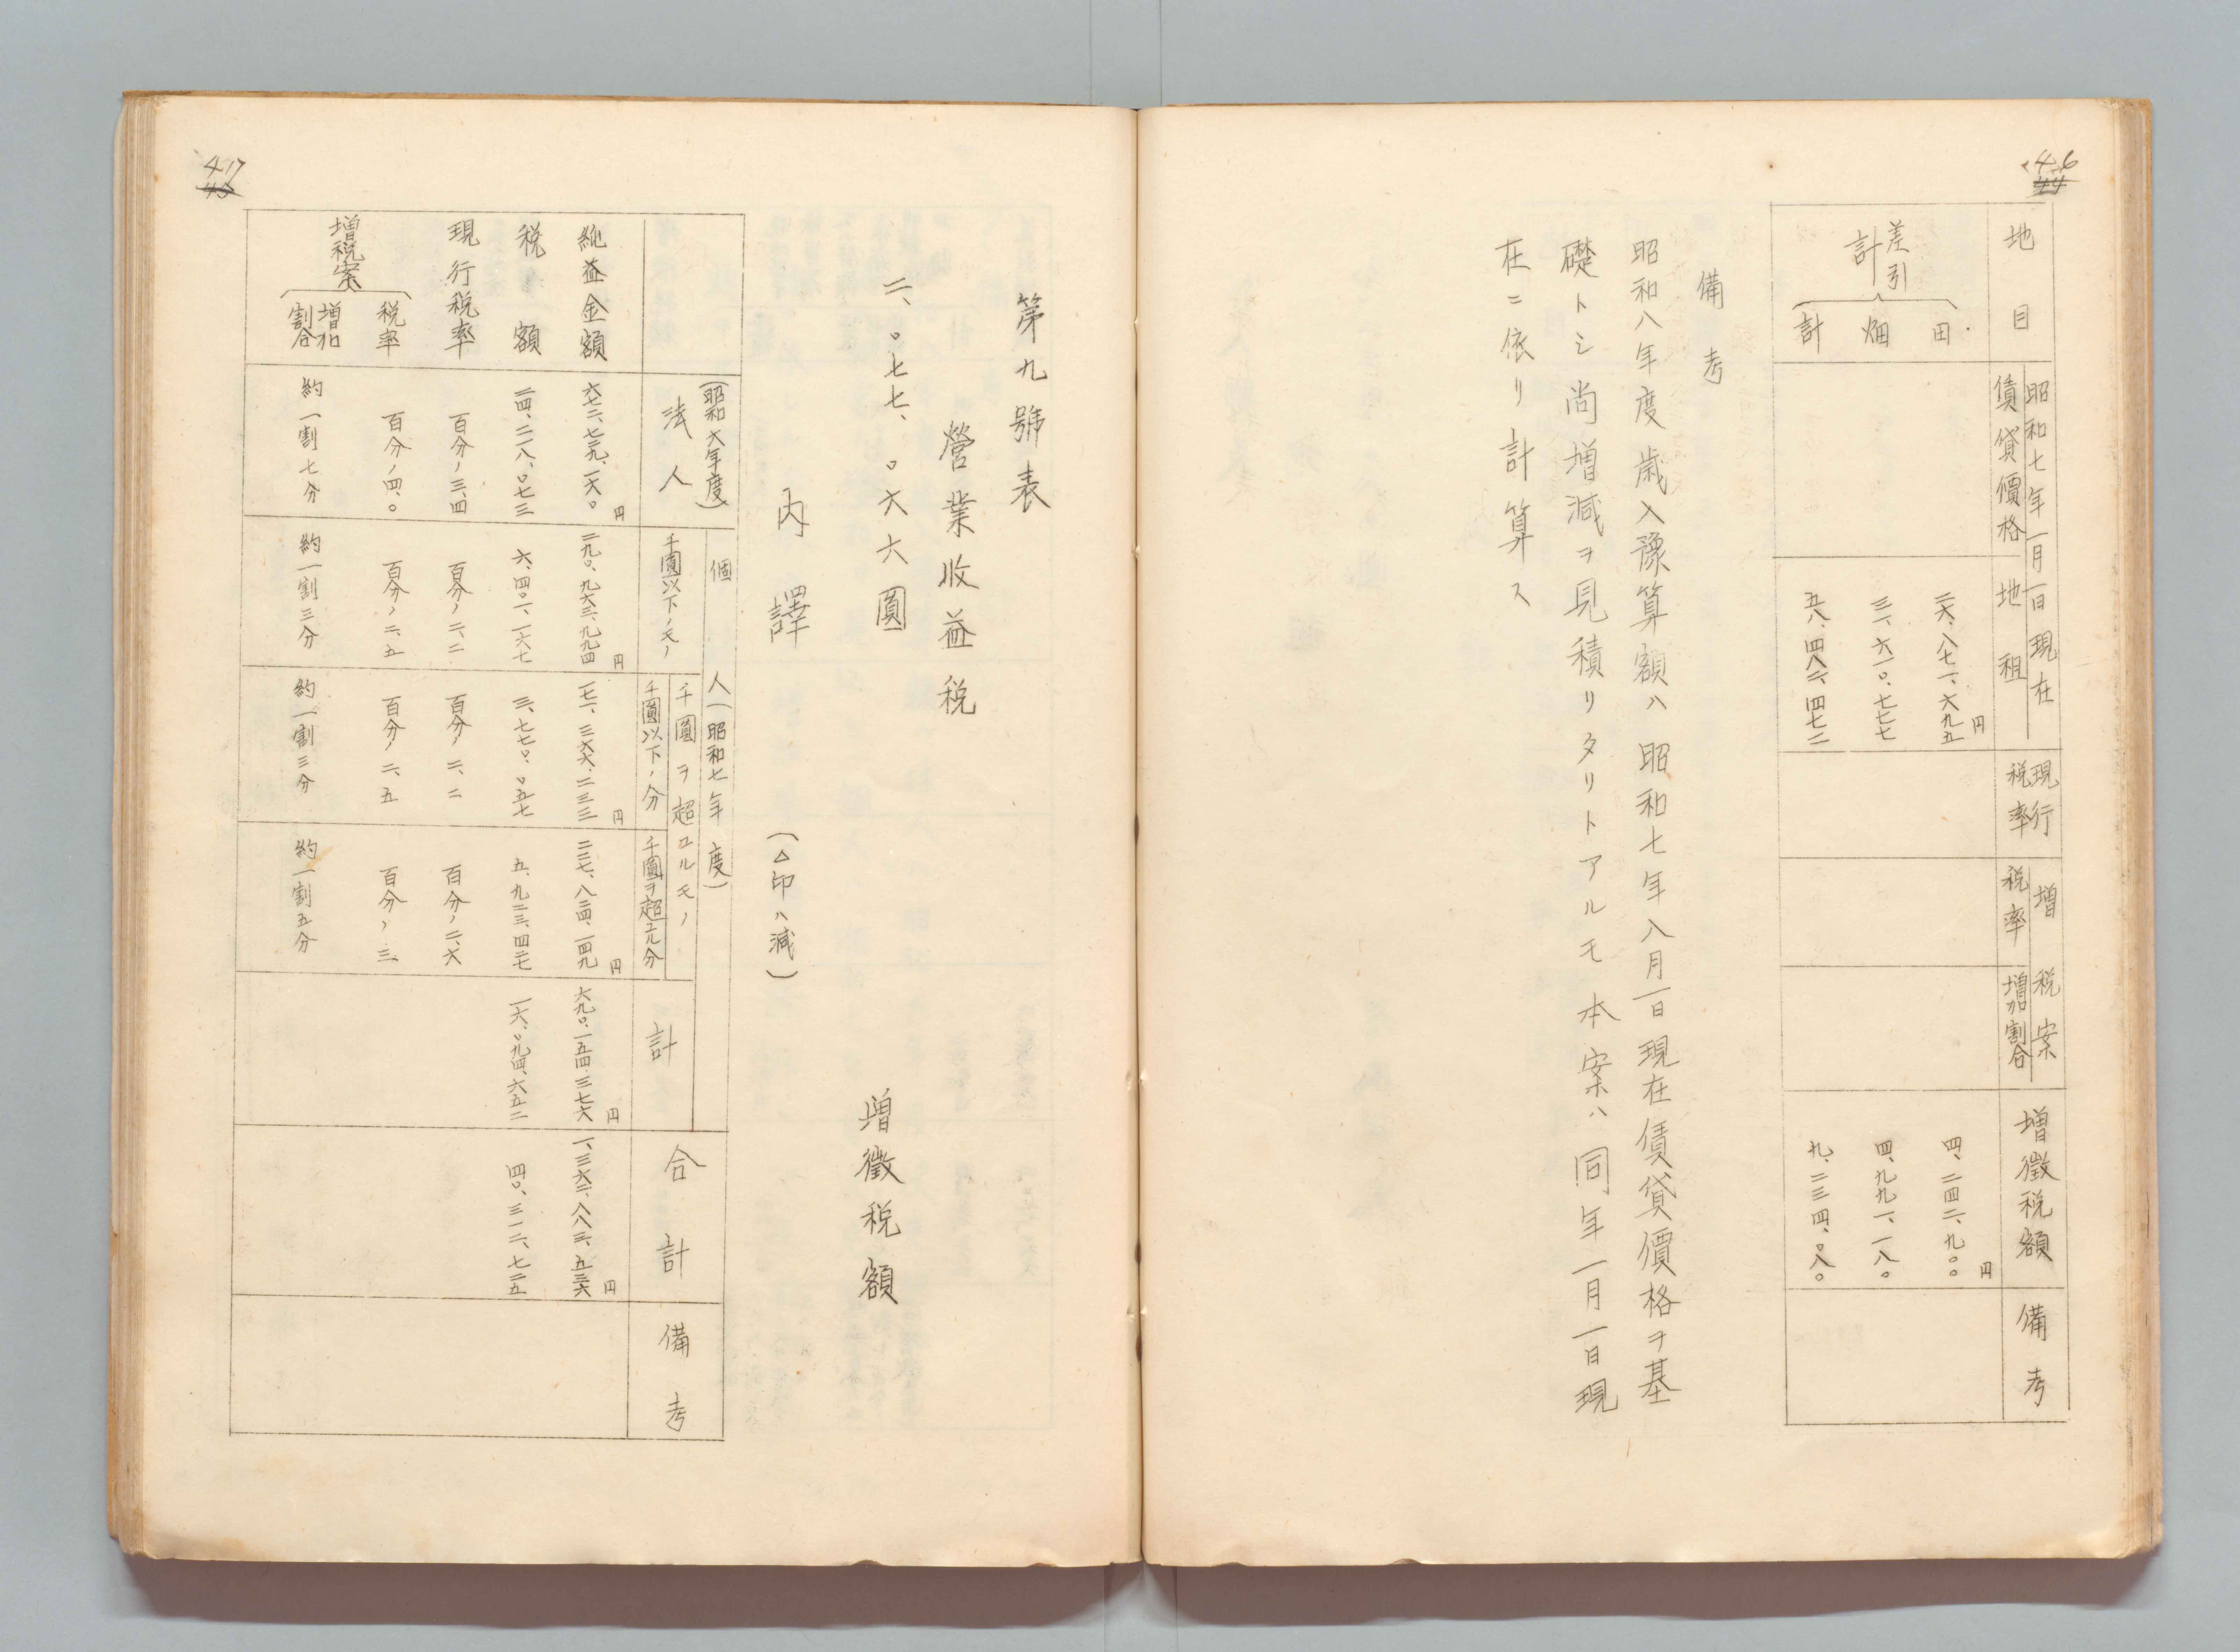 46
44
地目
昭和七年一月一日現在
賃貸價格
地租
現行税率
増税案
税率
増加割合
増徴税額
備考
差引計
田
二六、八七一、六九五円
四、二四二、九〇〇円
畑
三一、六一〇、七七七
四、九九一、一八〇
計
五八、四八二、四七二
九、二三四、〇八〇
備考
昭和八年度歳入豫算額ハ昭和七年八月一日現在賃貸價格ヲ基
礎トシ尚増減ヲ見積リタリトアルモ本案ハ同年一月一日現
在ニ依リ計算ス
47
第九號表
營業收益税
二、〇七七、〇六六圓
増徴税額
内譯
(△印ハ減)
(昭和六年度)
法人
個人(昭和七年度)
千圓以下ノモノ
千圓ヲ超ユルモノ
千圓以下ノ分
千圓ヲ超ユル分
計
合計
備考
純益金額
六七二、七二九、一六〇円
二九〇、九六三、九九四円
一七一、三六六、二三三円
二二七、八二四、一四九円
六九〇、一五四、三七六円
一、三六二、八八三、五三六円
税額
二四、二一八、〇七三
六、四〇一、一六七
三、七七〇、〇五七
五、九二三、四二七
一六、〇九四、六五二
四〇、三一二、七二五
現行税率
百分ノ三、四
百分ノ二、二
百分ノ二、二
百分ノ二、六
増税案
税率
百分ノ四、〇
百分ノ二、五
百分ノ二、五
百分ノ三
増加割合
約一割七分
約一割三分
約一割三分
約一割五分